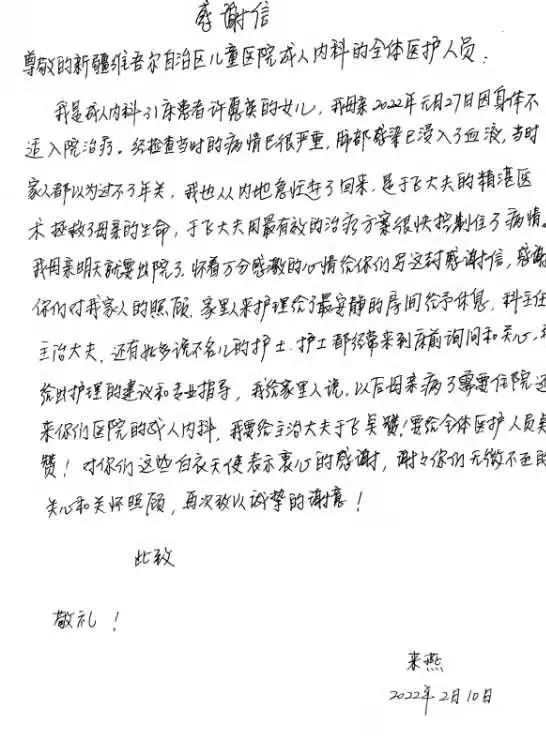 感谢信
尊敬的新疆维吾尔自治区儿童医院成人内科的全体医护人员：
我是成人内科31床患者许惠英的女儿，我母亲2022年元月27日因身体不
适入院治疗。经检查当时的病情已很严重，肺部感染已浸入了血液，当时
家人都以为过不了年关，我也从内地急忙赶了回来，是于飞大夫的精湛医
术拯救了母亲的生命，于飞大夫用最有效的治疗方案很快控制住了病情。
我母亲明天就要出院了，怀着万分感激的心情给你们写这封感谢信，感谢
你们对我家人的照顾，家里人来护理给了最安静的房间给予休息，科主任
主治大夫，还有好多说不名儿的护士，护士都经常来到床前询问和关心，
给出护理的建议和专业指导，我给家里人说，以后母亲病了需要住院还
来你们医院的成人内科，我要给主治大夫于飞点赞！要给全体医护人员点
赞！对你们这些白衣天使表示衷心的感谢，谢谢你们无微不至的
关心和关怀照顾，再次致以诚挚的谢意！
此致
敬礼！
来燕
2022年2月10日